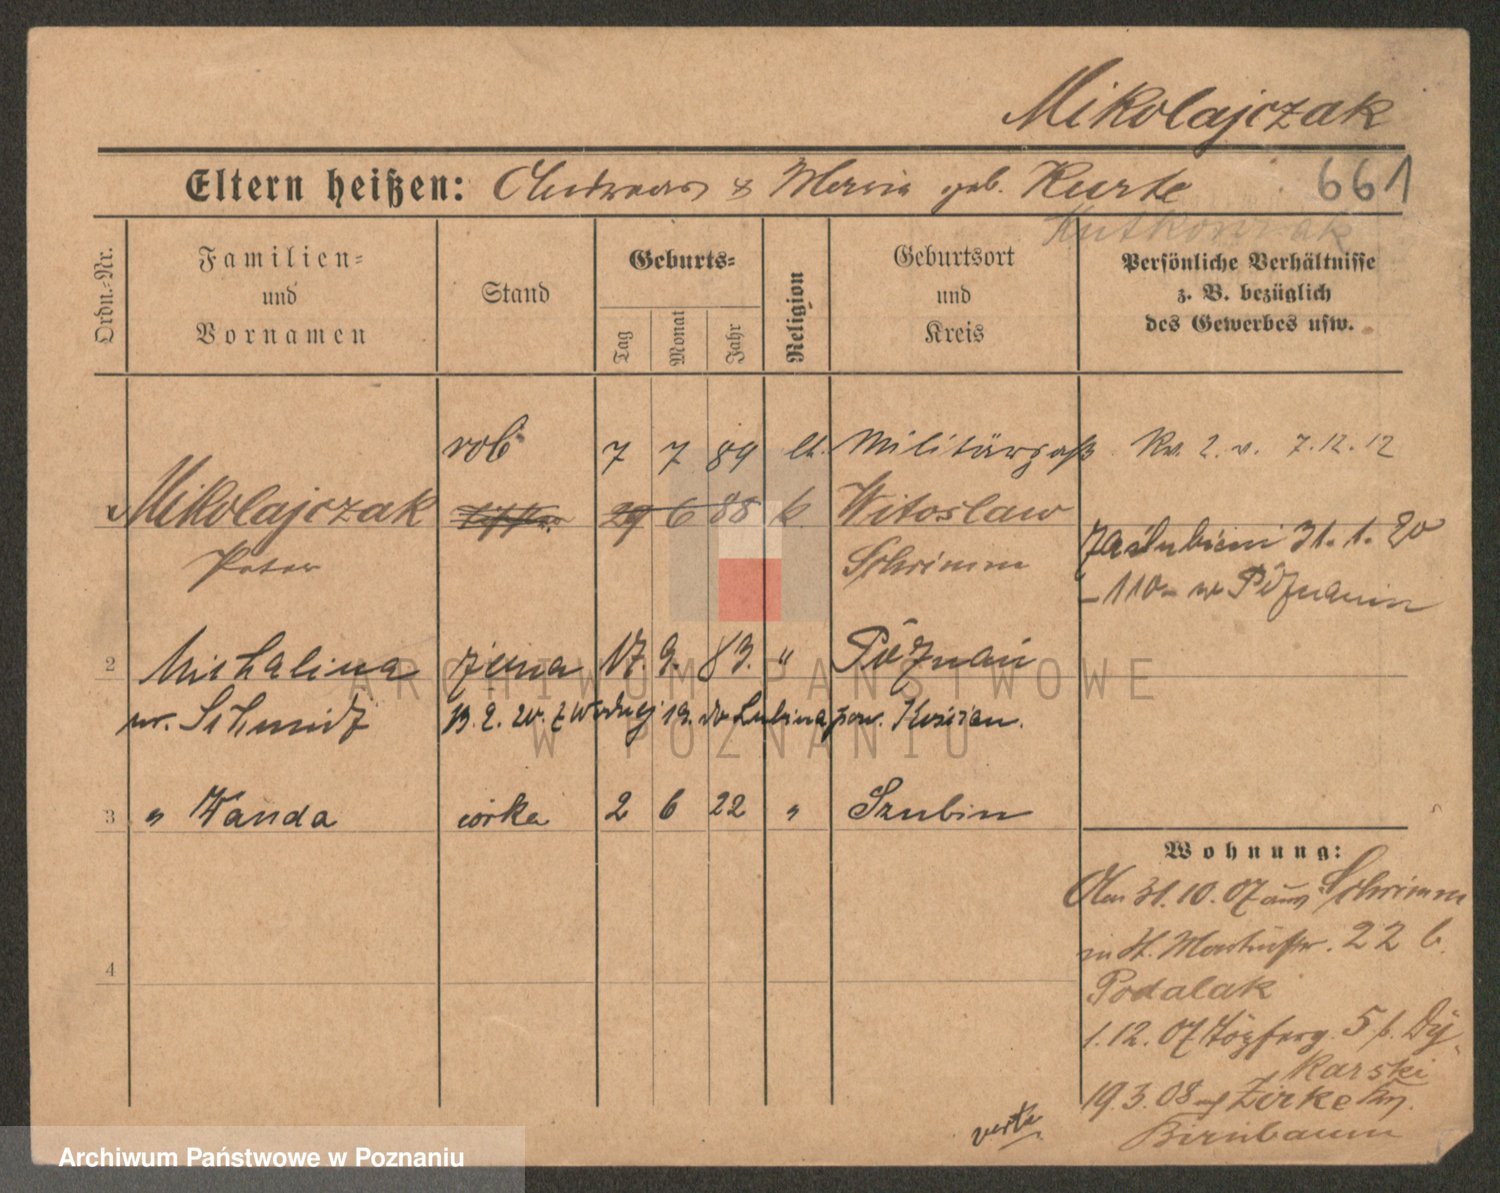 Mikolajczak
Eltern heißen: Andreas & Maria geb. Kurte 661
Kutkowiak
Ordn.-Nr.
Familien-
und
Vornamen
Stand
Geburts-
Tag
Monat
Jahr
Religion
Geburtsort
und
Kreis
Persönliche Verhältnisse
z. B. bezüglich
des Gewerbes usw.
rob 7 7 89 Militärpaß Kr. 2. v. 7.12.12
1 Mikolajczak 29 6 88 k. Witoslaw
Peter Schrimm
zaślubieni 31. 1. 20
-110- w Poznaniu
2 Michalina żona 17. 9. 83. " Poznań
ur. Schmidt 13. 2. 20. z Wodnej 19. do Lubina pow. Kościan.
3 " Wanda córka 2 6 22 " Szubin
4
Wohnung:
Am 31.10.07 aus Schrimm
in St. Martinstr. 22 b.
Podalak
1.12.07 Töpferg. 5 b. Dy-
karski
19.3.08 Zirke Krs.
Birnbaum
verte
ARCHIWUM PAŃSTWOWE
W POZNANIU
Archiwum Państwowe w Poznaniu